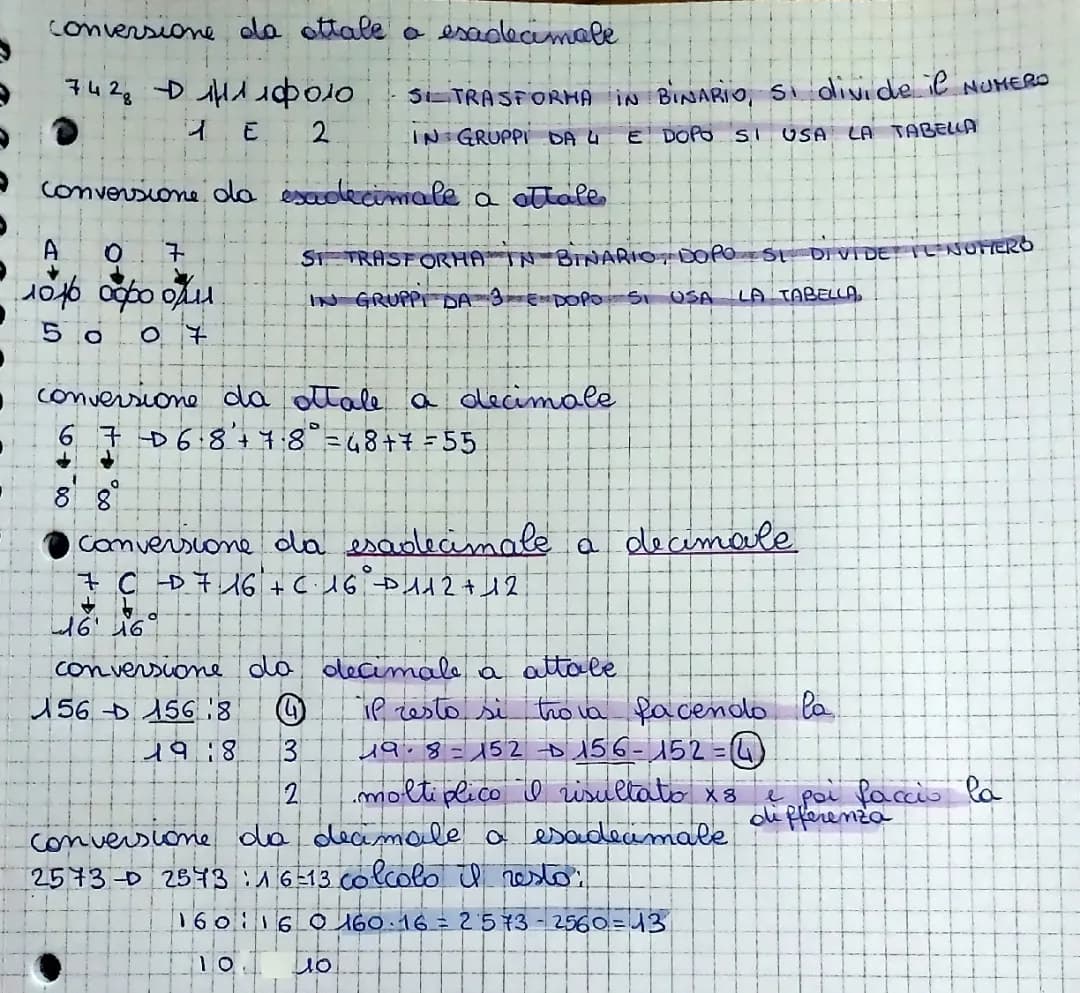 conversione da ottale a esadecimale
742₈ → 1/1110/0010 SI TRASFORMA IN BINARIO, SI divide il NUMERO
1 E 2 IN GRUPPI DA 4 E DOPO SI USA LA TABELLA
conversione da esadecimale a ottale
A 0 7 SI TRASFORMA IN BINARIO, DOPO SI DIVIDE IL NUMERO
↓ ↓ ↓
101/0 00/00 0/111 IN GRUPPI DA 3 E DOPO SI USA LA TABELLA
5 0 0 7
conversione da ottale a decimale
6 7 → 6·8¹+7·8⁰=48+7=55
↓ ↓
8¹ 8⁰
conversione da esadecimale a decimale
7 C → 7·16¹+C·16⁰→112+12
↓ ↓
16¹ 16⁰
conversione da decimale a ottale
156 → 156:8 4 il resto si trova facendo la
19:8 3 19·8=152 → 156-152=4
2 moltiplico il risultato x8 e poi faccio la
differenza
conversione da decimale a esadecimale
2573 → 2573:16=13 calcolo il resto:
160:16 0 160·16=2573-2560=13
10 10